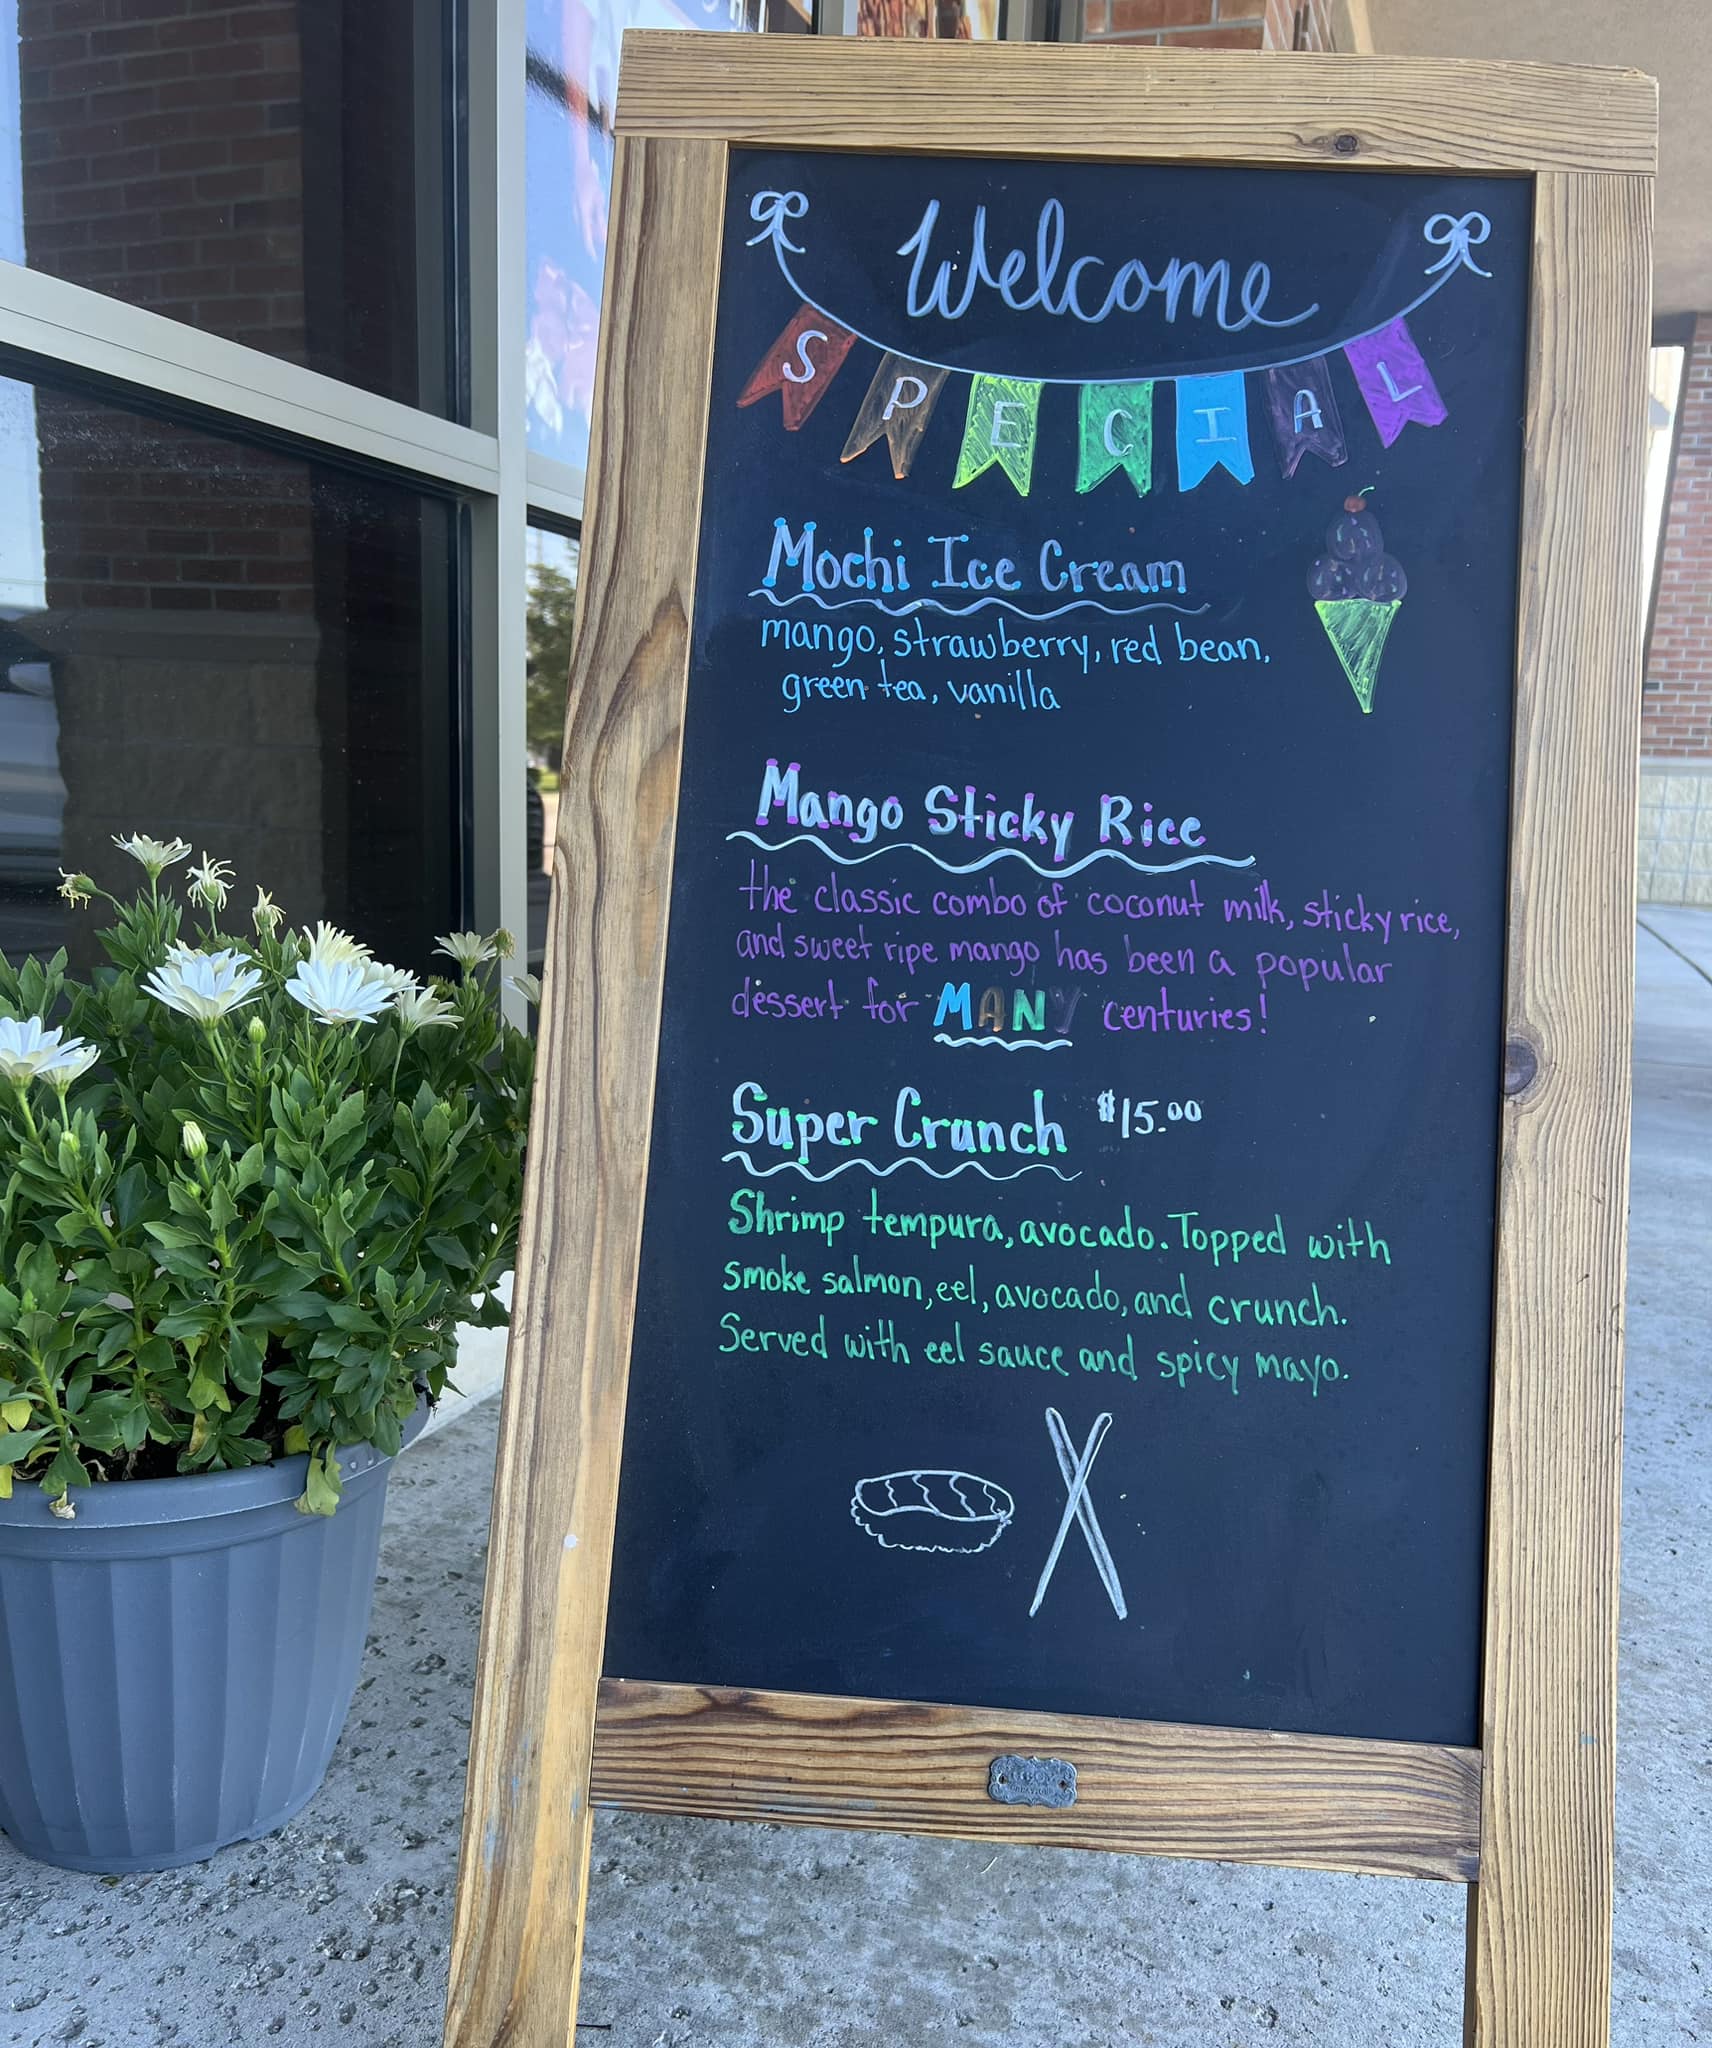 Welcome
SPECIAL
Mochi Ice Cream
mango, strawberry, red bean,
green tea, vanilla
Mango Sticky Rice
the classic combo of coconut milk, sticky rice,
and sweet ripe mango has been a popular
dessert for MANY centuries!
Super Crunch $15.00
Shrimp tempura, avocado. Topped with
smoke salmon, eel, avocado, and crunch.
Served with eel sauce and spicy mayo.